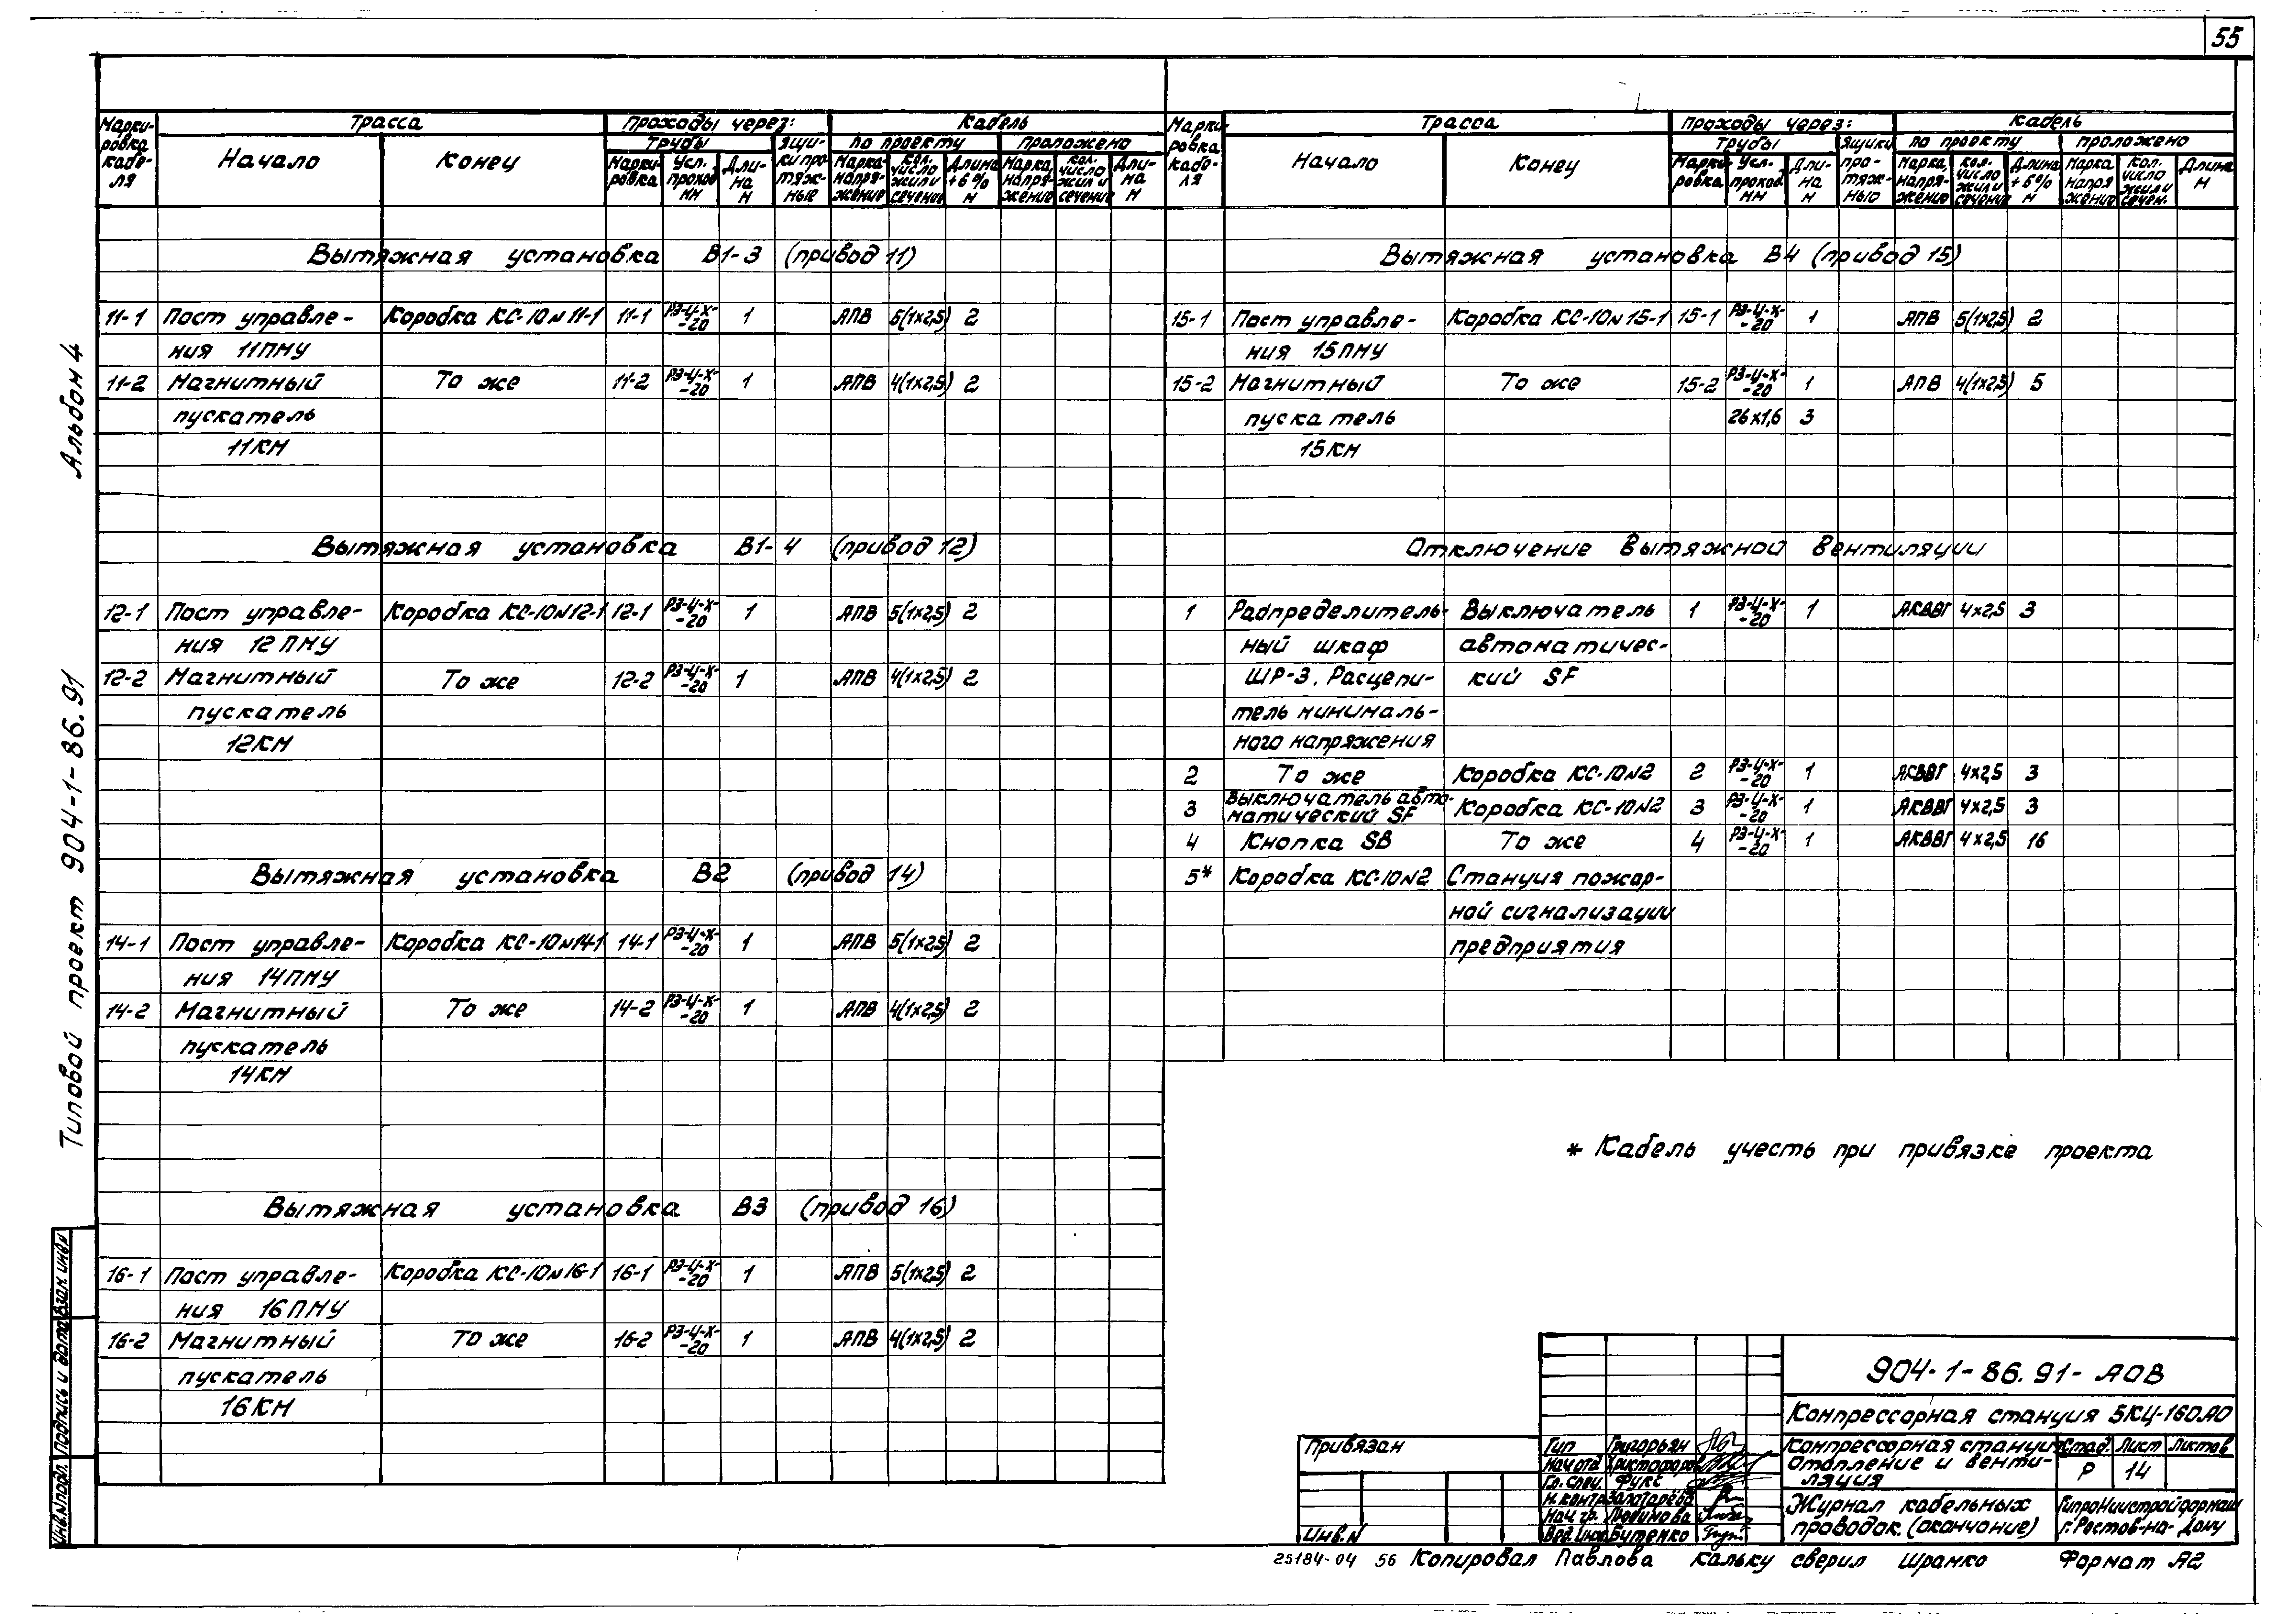 55
Альбом 4
Типовой проект 904-1-86.91
Инв.№подл. Подпись и дата Взам.инв.№
Марки-ровка кабе-ля | Трасса | Проходы через: | Кабель
Начало | Конец | Трубы | Ящи-ки про-тяж-ные | по проекту | проложено
Марки-ровка | Усл. проход мм | Дли-на м | Марка, напря-жение | Кол. число жил и сечение | Длина +6% м | Марка, напря-жение | Кол. число жил и сечение | Дли-на м
Вытяжная установка В1-3 (привод 11)
11-1 Пост управле- Коробка КС-10№11-1 11-1 РЗ-Ц-Х--20 1 АПВ 5(1х2,5) 2
ния 11ПМУ
11-2 Магнитный То же 11-2 РЗ-Ц-Х--20 1 АПВ 4(1х2,5) 2
пускатель
11КМ
Вытяжная установка В1-4 (привод 12)
12-1 Пост управле- Коробка КС-10№12-1 12-1 РЗ-Ц-Х--20 1 АПВ 5(1х2,5) 2
ния 12ПМУ
12-2 Магнитный То же 12-2 РЗ-Ц-Х--20 1 АПВ 4(1х2,5) 2
пускатель
12КМ
Вытяжная установка В2 (привод 14)
14-1 Пост управле- Коробка КС-10№14-1 14-1 РЗ-Ц-Х--20 1 АПВ 5(1х2,5) 2
ния 14ПМУ
14-2 Магнитный То же 14-2 РЗ-Ц-Х--20 1 АПВ 4(1х2,5) 2
пускатель
14КМ
Вытяжная установка В3 (привод 16)
16-1 Пост управле- Коробка КС-10№16-1 16-1 РЗ-Ц-Х--20 1 АПВ 5(1х2,5) 2
ния 16ПМУ
16-2 Магнитный То же 16-2 РЗ-Ц-Х--20 1 АПВ 4(1х2,5) 2
пускатель
16КМ
Марки-ровка кабе-ля | Трасса | Проходы через: | Кабель
Начало | Конец | Трубы | Ящики про-тяж-ные | по проекту | проложено
Марки-ровка | Усл. проход мм | Дли-на м | Марка, напря-жение | Кол. число жил и сечение | Длина +6% м | Марка напря жение | Кол. число жил и сечен. | Длина м
Вытяжная установка В4 (привод 15)
15-1 Пост управле- Коробка КС-10№15-1 15-1 РЗ-Ц-Х--20 1 АПВ 5(1х2,5) 2
ния 15ПМУ
15-2 Магнитный То же 15-2 РЗ-Ц-Х--20 1 АПВ 4(1х2,5) 5
пускатель 26х1,6 3
15КМ
Отключение вытяжной вентиляции
1 Распределитель- Выключатель 1 РЗ-Ц-Х--20 1 АКВВГ 4х2,5 3
ный шкаф автоматичес-
ШР-3. Расцепи- кий SF
тель минималь-
ного напряжения
2 То же Коробка КС-10№2 2 РЗ-Ц-Х--20 1 АКВВГ 4х2,5 3
3 Выключатель авто-матический SF Коробка КС-10№2 3 РЗ-Ц-Х--20 1 АКВВГ 4х2,5 3
4 Кнопка SB То же 4 РЗ-Ц-Х--20 1 АКВВГ 4х2,5 16
5* Коробка КС-10№2 Станция пожар-
ной сигнализации
предприятия
* Кабель учесть при привязке проекта
904-1-86.91-АОВ
Компрессорная станция 5КЦ-160.А0
Привязан
Инв.№
Гип Григорьян
Нач отд Христофоров
Гл.спец. Фукс
Н.контр Залатарёва
Нач гр. Любимова
Вед.инж Бутенко
Компрессорная станция
Отопление и венти-
ляция
Стад. Лист Листов
Р 14
Журнал кабельных
проводок (окончание)
ГипроНиистройдормаш
г.Ростов-на-Дону
25184-04 56 Копировал Павлова Кальку сверил Шрамко Формат А2